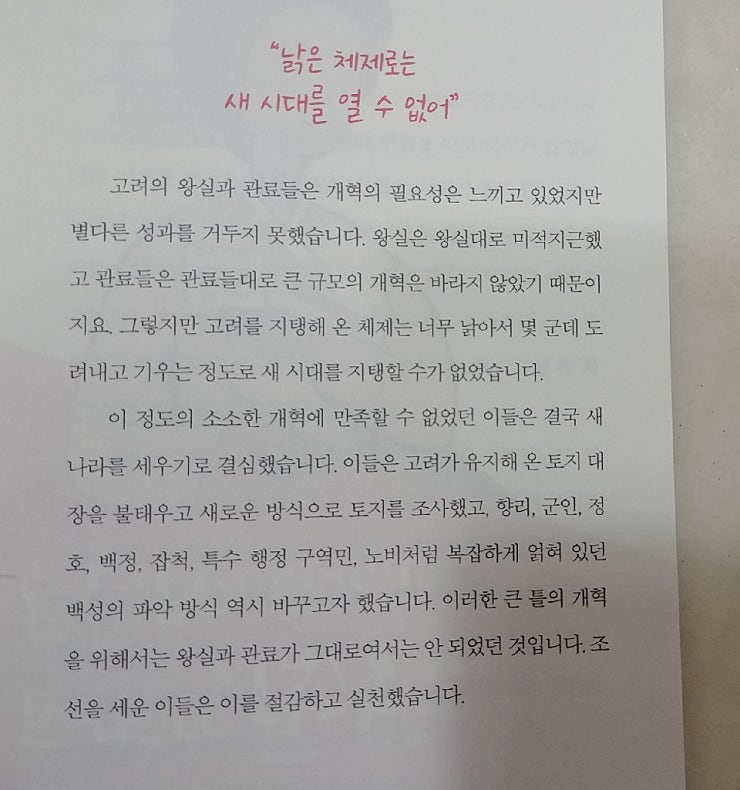 “낡은 체제로는
새 시대를 열 수 없어”
고려의 왕실과 관료들은 개혁의 필요성은 느끼고 있었지만
별다른 성과를 거두지 못했습니다. 왕실은 왕실대로 미적지근했
고 관료들은 관료들대로 큰 규모의 개혁은 바라지 않았기 때문이
지요. 그렇지만 고려를 지탱해 온 체제는 너무 낡아서 몇 군데 도
려내고 기우는 정도로 새 시대를 지탱할 수가 없었습니다.
이 정도의 소소한 개혁에 만족할 수 없었던 이들은 결국 새
나라를 세우기로 결심했습니다. 이들은 고려가 유지해 온 토지 대
장을 불태우고 새로운 방식으로 토지를 조사했고, 향리, 군인, 정
호, 백정, 잡척, 특수 행정 구역민, 노비처럼 복잡하게 얽혀 있던
백성의 파악 방식 역시 바꾸고자 했습니다. 이러한 큰 틀의 개혁
을 위해서는 왕실과 관료가 그대로여서는 안 되었던 것입니다. 조
선을 세운 이들은 이를 절감하고 실천했습니다.